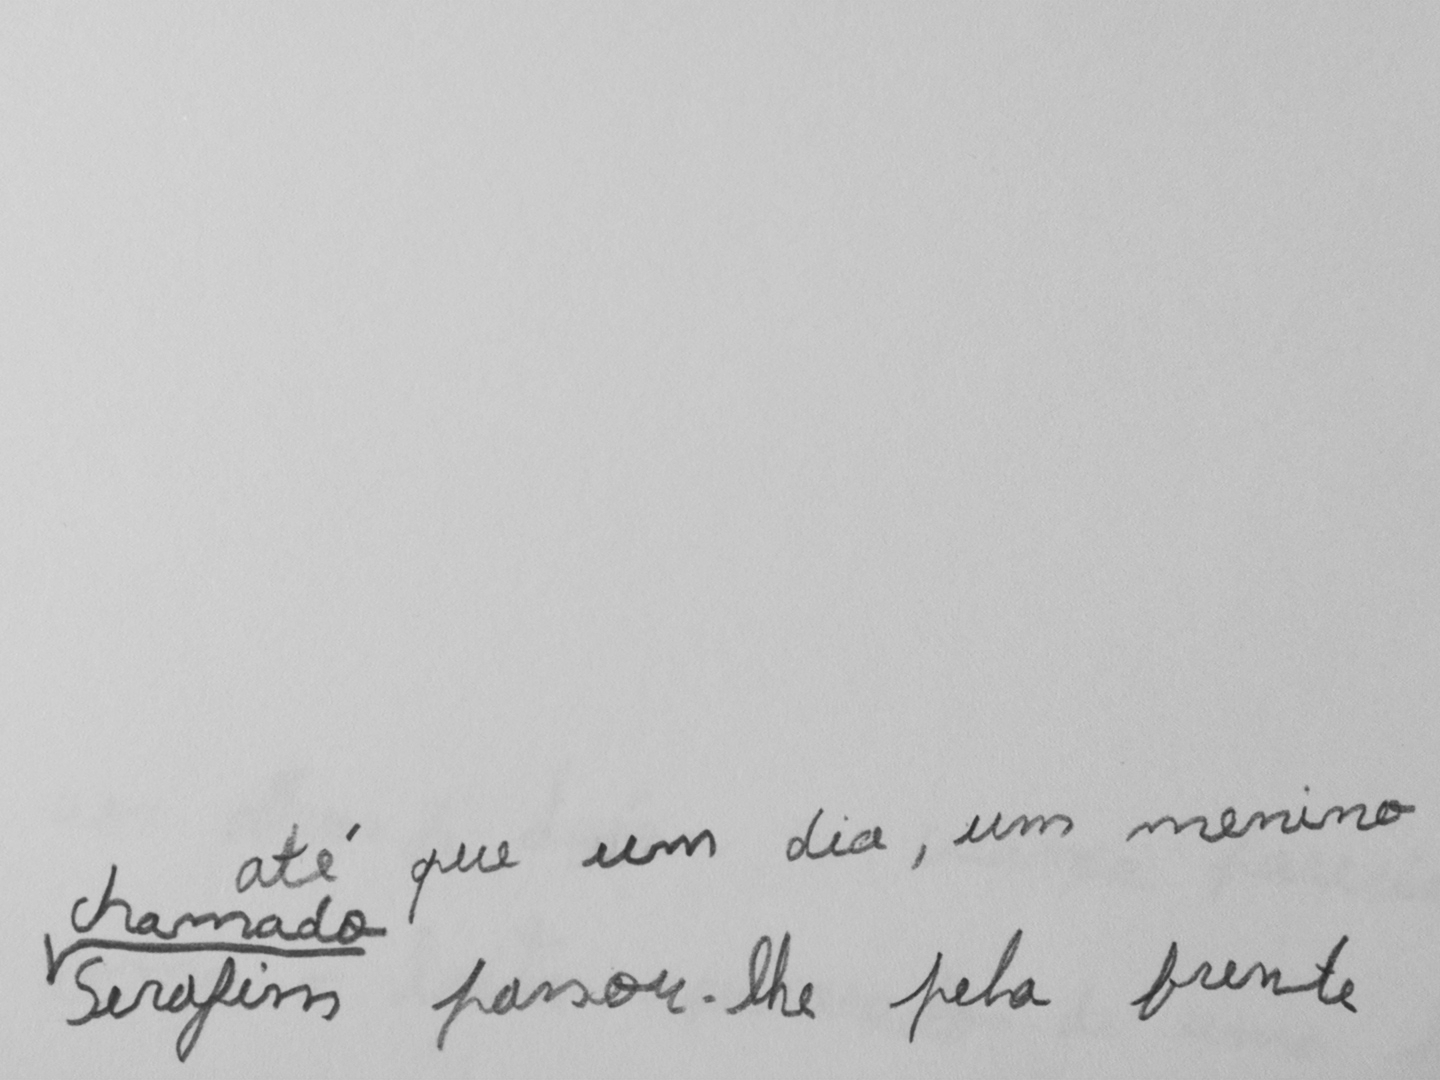 até que um dia, um menino
chamado
Serafim passou-lhe pela frente